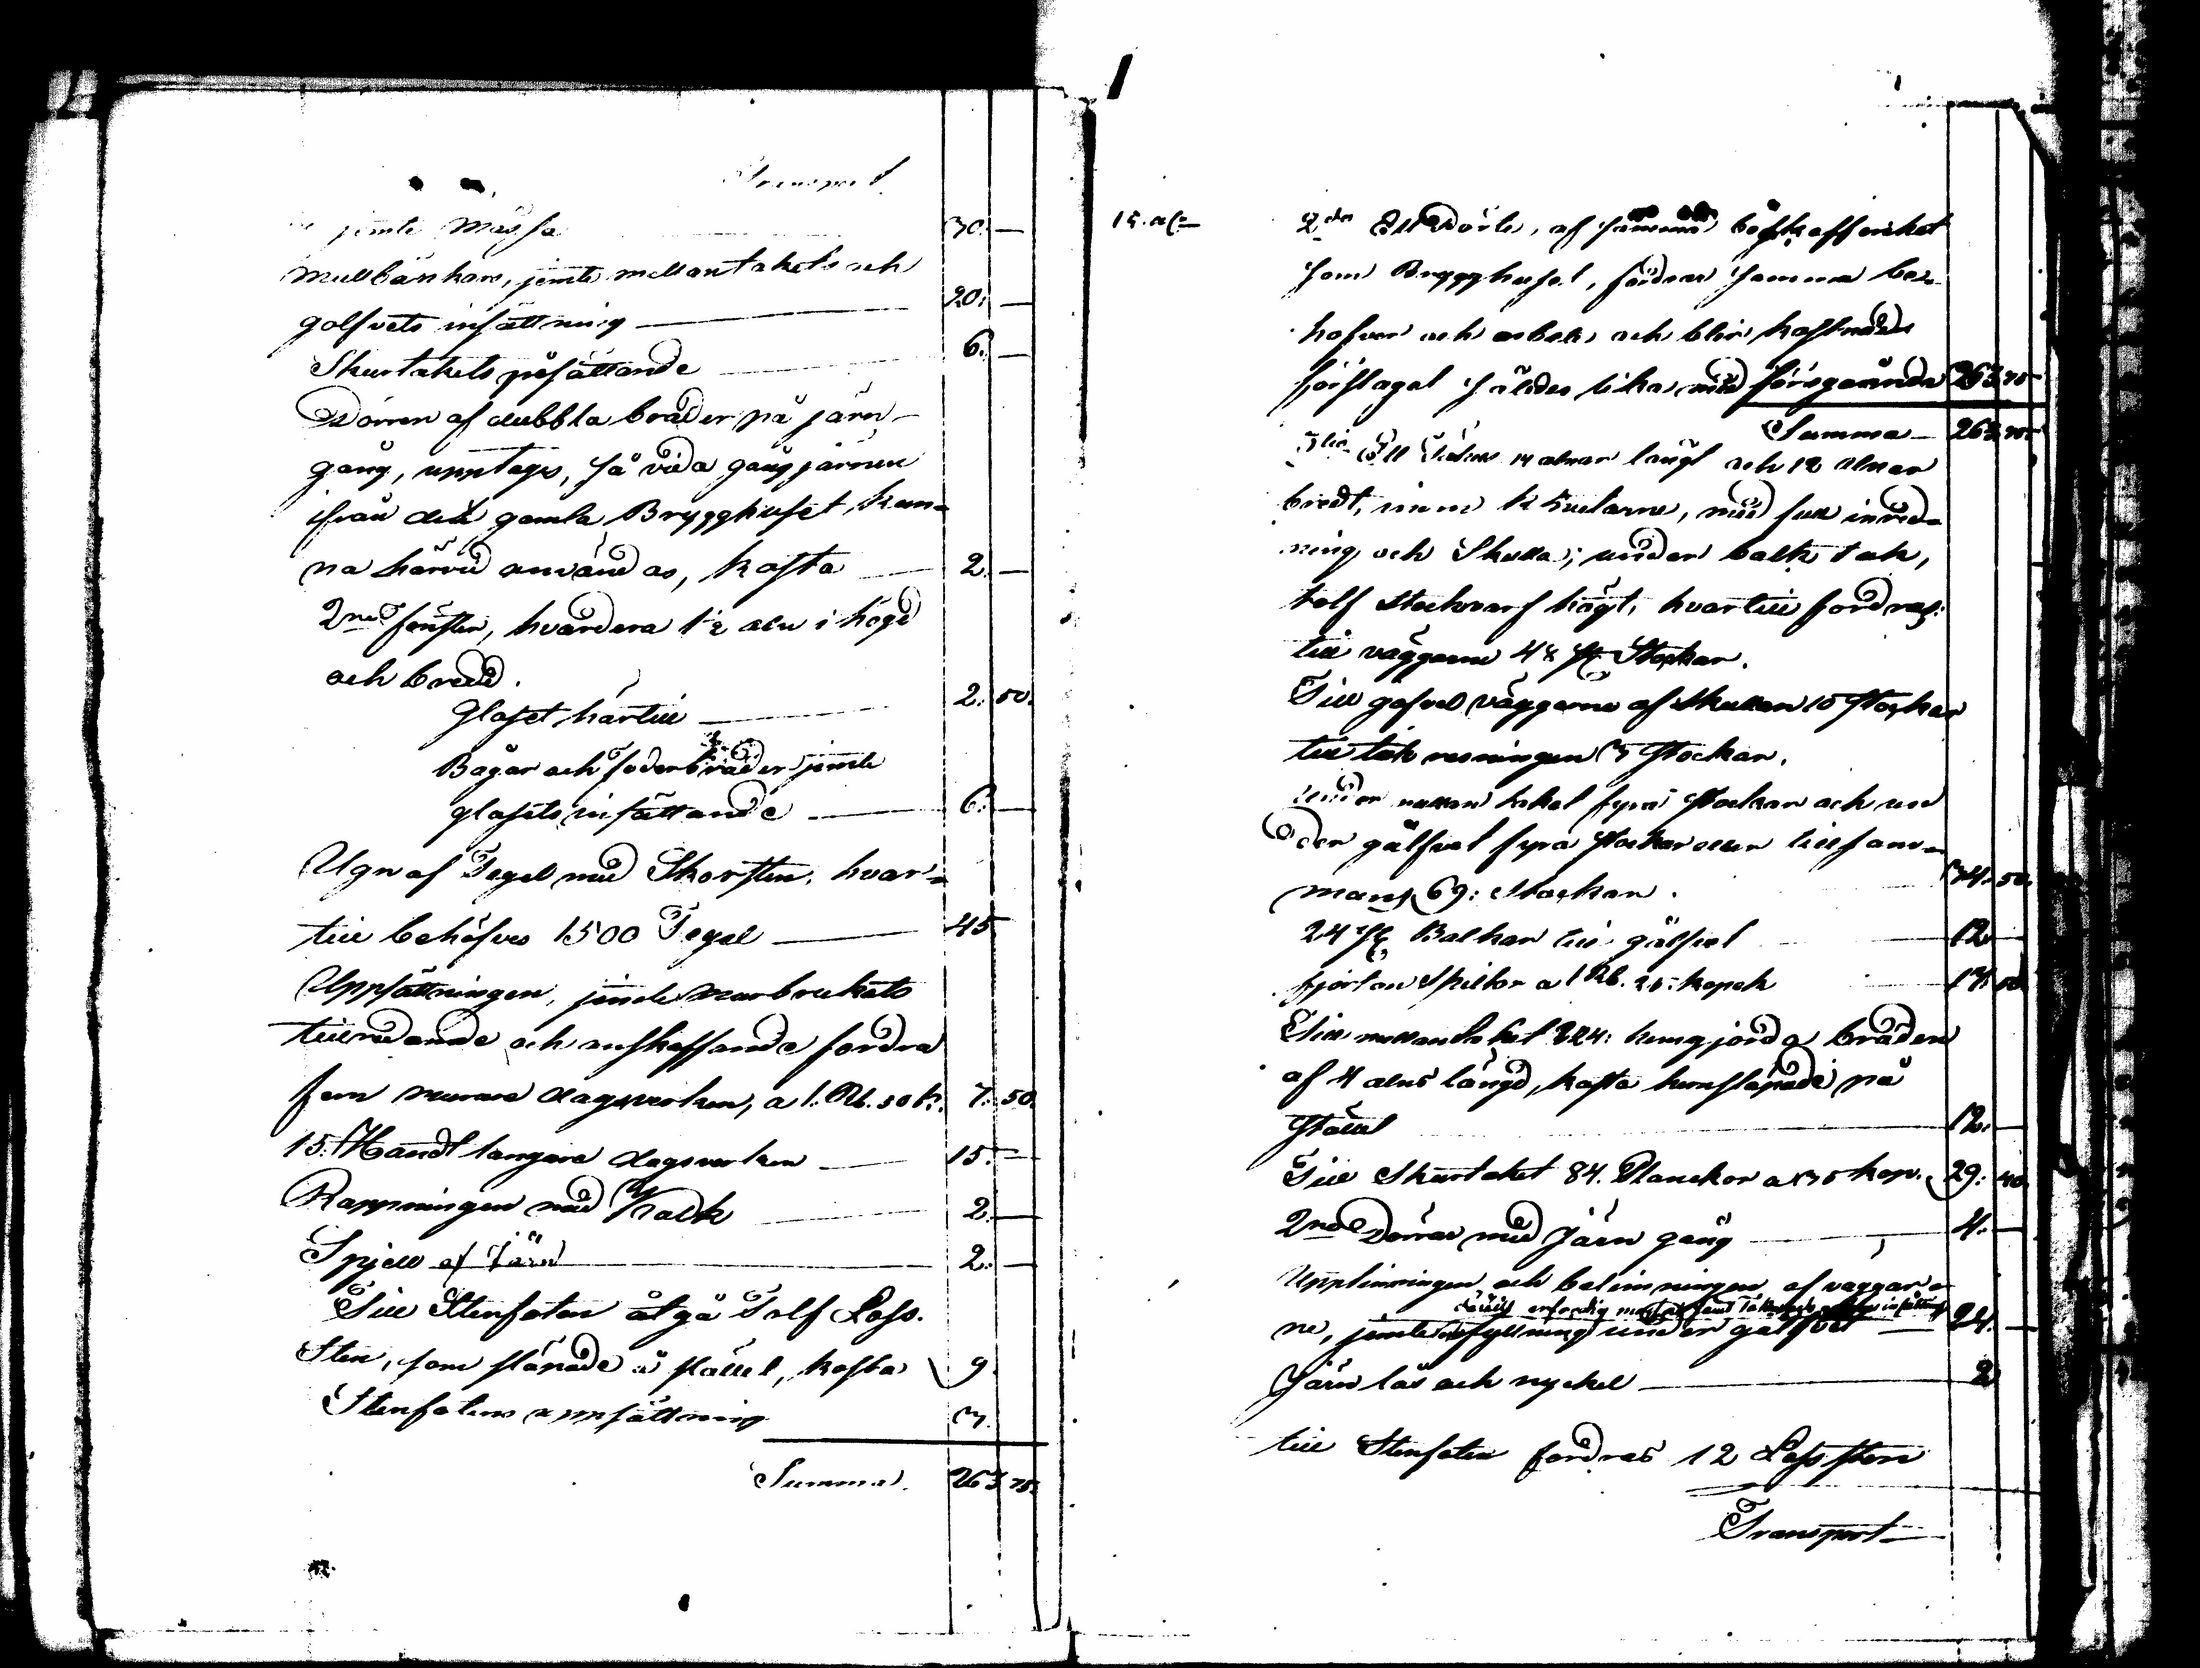 Transport
jemte Mässa 30. —
Mullbänkars, jemte mellantakets och
golfvets insättning — 20. —
Skurtakets påsättande — 6. —
Dörren af dubbla bräder på järn-
gång, upptages, så vida gångjärnen
ifrån det gamla Brygghuset, kun-
na härvid användas, kosta — 2. —
2ne fönster, hvardera 1½ aln i högd
och bredd.
Glaset härtill — 2. 50.
Bågar och foderbräder jemte
glasets insättande — 6. —
Ugn af Tegel med Skorsten, hvar-
till behöfves 1500 Tegel — 45
Uppsättningen, jemte murbrukets
tillredande och anskaffande fordra
fem murare dagsverken, a 1. Rb. 50 k. 7. 50.
15. Handtlangare dagsverken — 15. —
Rappningen med Kalk — 2. —
Spjell af Järn — 2. —
Till Stenfoten åtgå Tolf Lass.
Sten, som släpade å stället, kosta 9.
Stenfotens uppsättning 3.
Summa. 263 75.
2do Ett af samma beskaffenhet
som Brygghuset, fordrar samma be-
hofver och arbete och blir kostnads
förslaget således lika med föregående 263 75
Summa — 263 75
3tio Ett 14 alnar långt och 12 alnar
bredt, inom knutarne, med full inred-
ning och Skulla; under balk tak,
tolf stockvarf högt, hvartill fordras:
till väggarne 48 st Stockar.
Till gafvel väggarne af Skullan 10 stockar
till tak resningen 3 stockar.
under mellan taket fyra stockar och un
der gålfvet fyra stockar eller tillsam-
mans 69: Stockar. 34. 50.
24 st Balkar till gålfvet 12. —
fjorton Spiltor a 1 Rb. 25. kopek 17. 50.
Till mellantaket 224: bräden
af 4 alns längd, kosta hemsläpade på
stället — 12. —
Till Skurtaket 84. Planckor a 35 kop. 29. 40.
2ne Dörrar med Järn gång — 4. —
Upptimringen och betimningen af väggar-
ne, jemte fyllning under gålfvet — 24. —
Järn lås och nyckel — 2
till Stenfoten fordras 12 Lass sten
Transport —